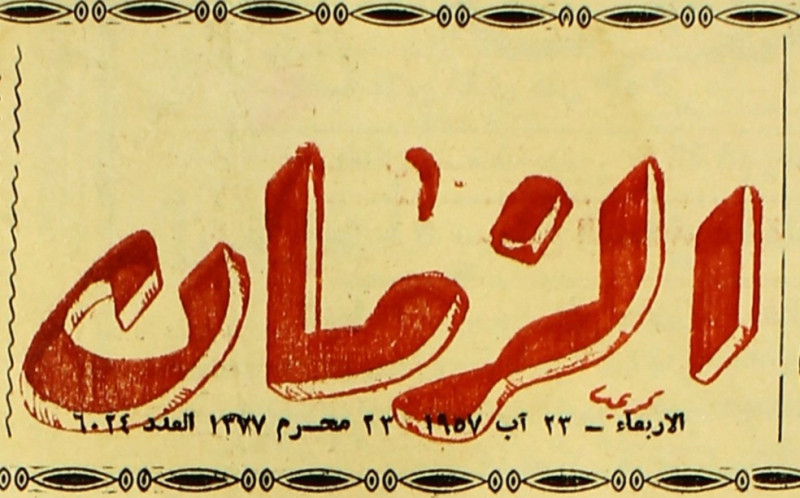 الزمان
الاربعاء – ٢٣ آب ١٩٥٧ ٢٣ محرم ١٣٧٧ العدد ٦٠٢٤